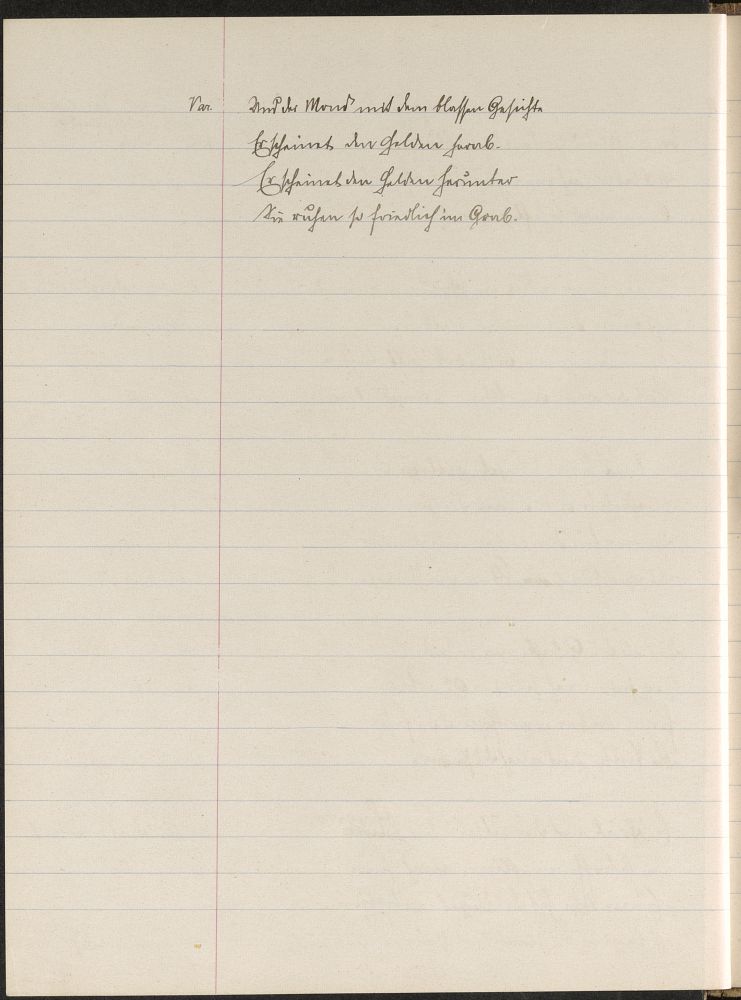 Var. Und der Mond mit dem blassen Gesichte
Er scheinet den Helden herab.
Er scheinet den Helden herunter
Sie ruhen so friedlich im Grab.